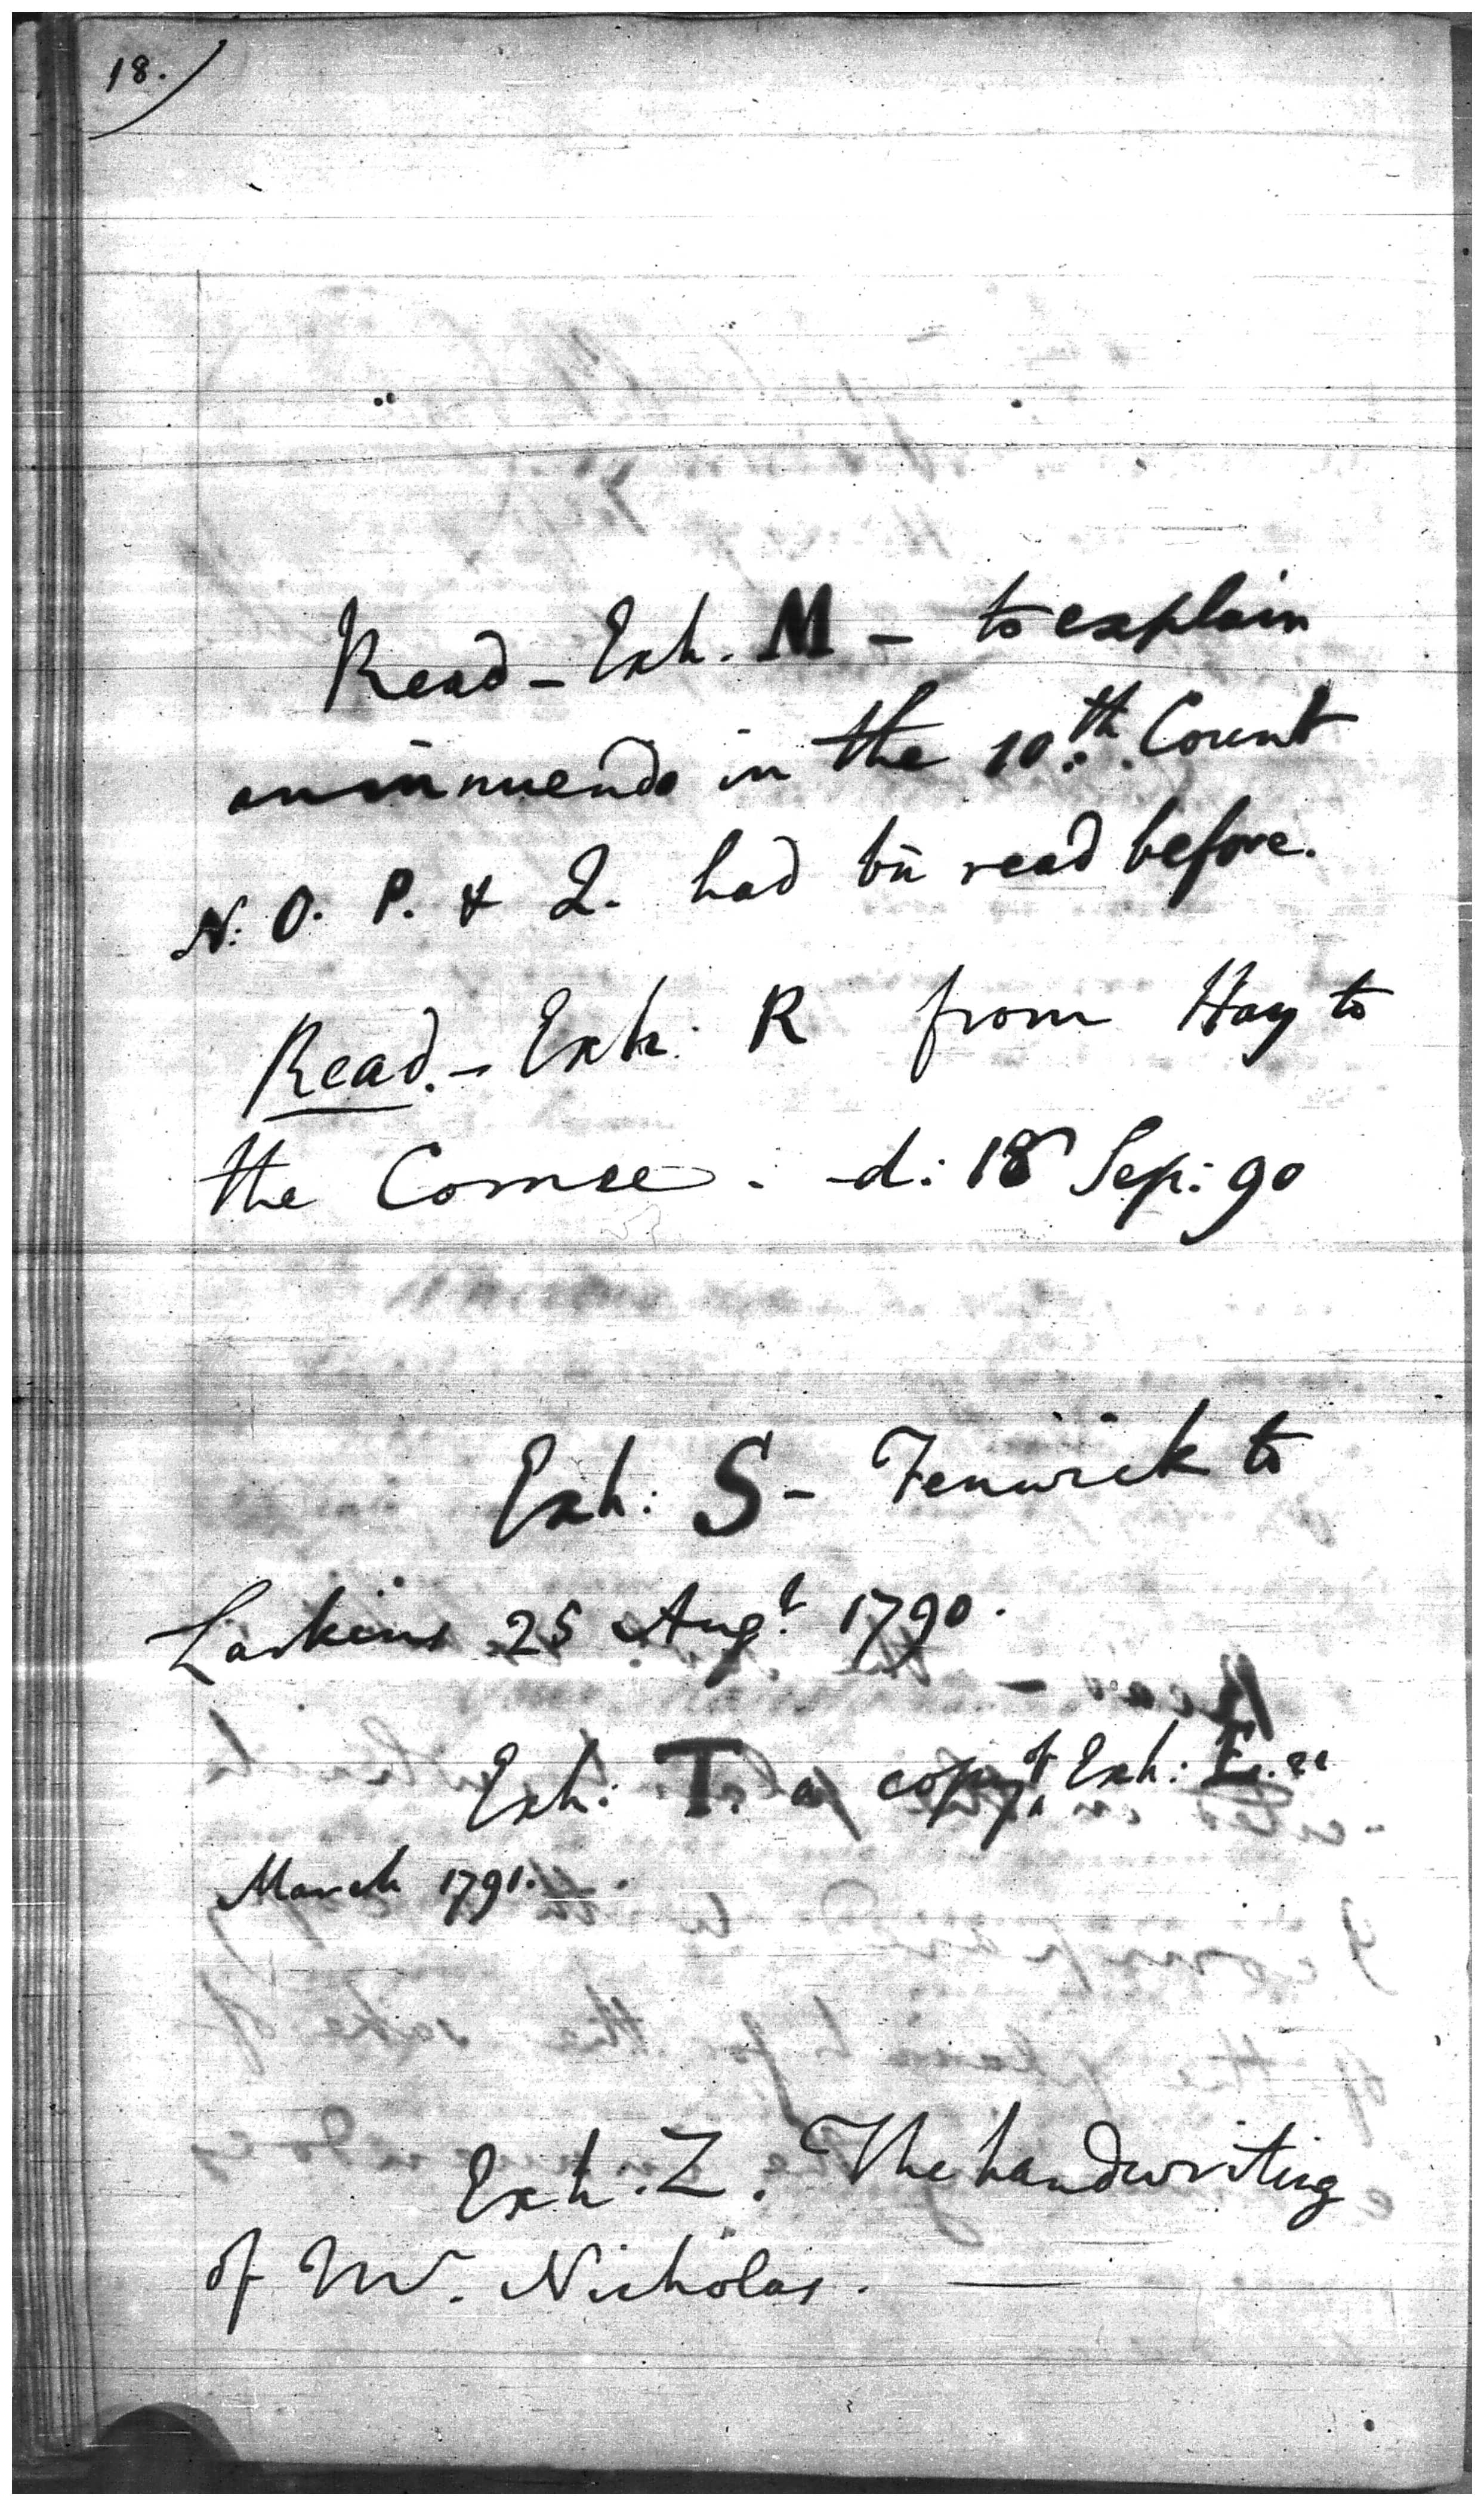 18.
Read - Exh. M - to explain
an innuendo in the 10.th Count
N. O. P. & Q. had bn read before.
Read. - Exh: R from Hay to
the Comee. d: 18 Sep: 90
Exh: S - Fenwick to
Larkins 25 Augt. 1790.
Exh: T. a copy of Exh: E. 22
March 1791.
Exh. Z. The handwriting
of Mr. Nicholas. —